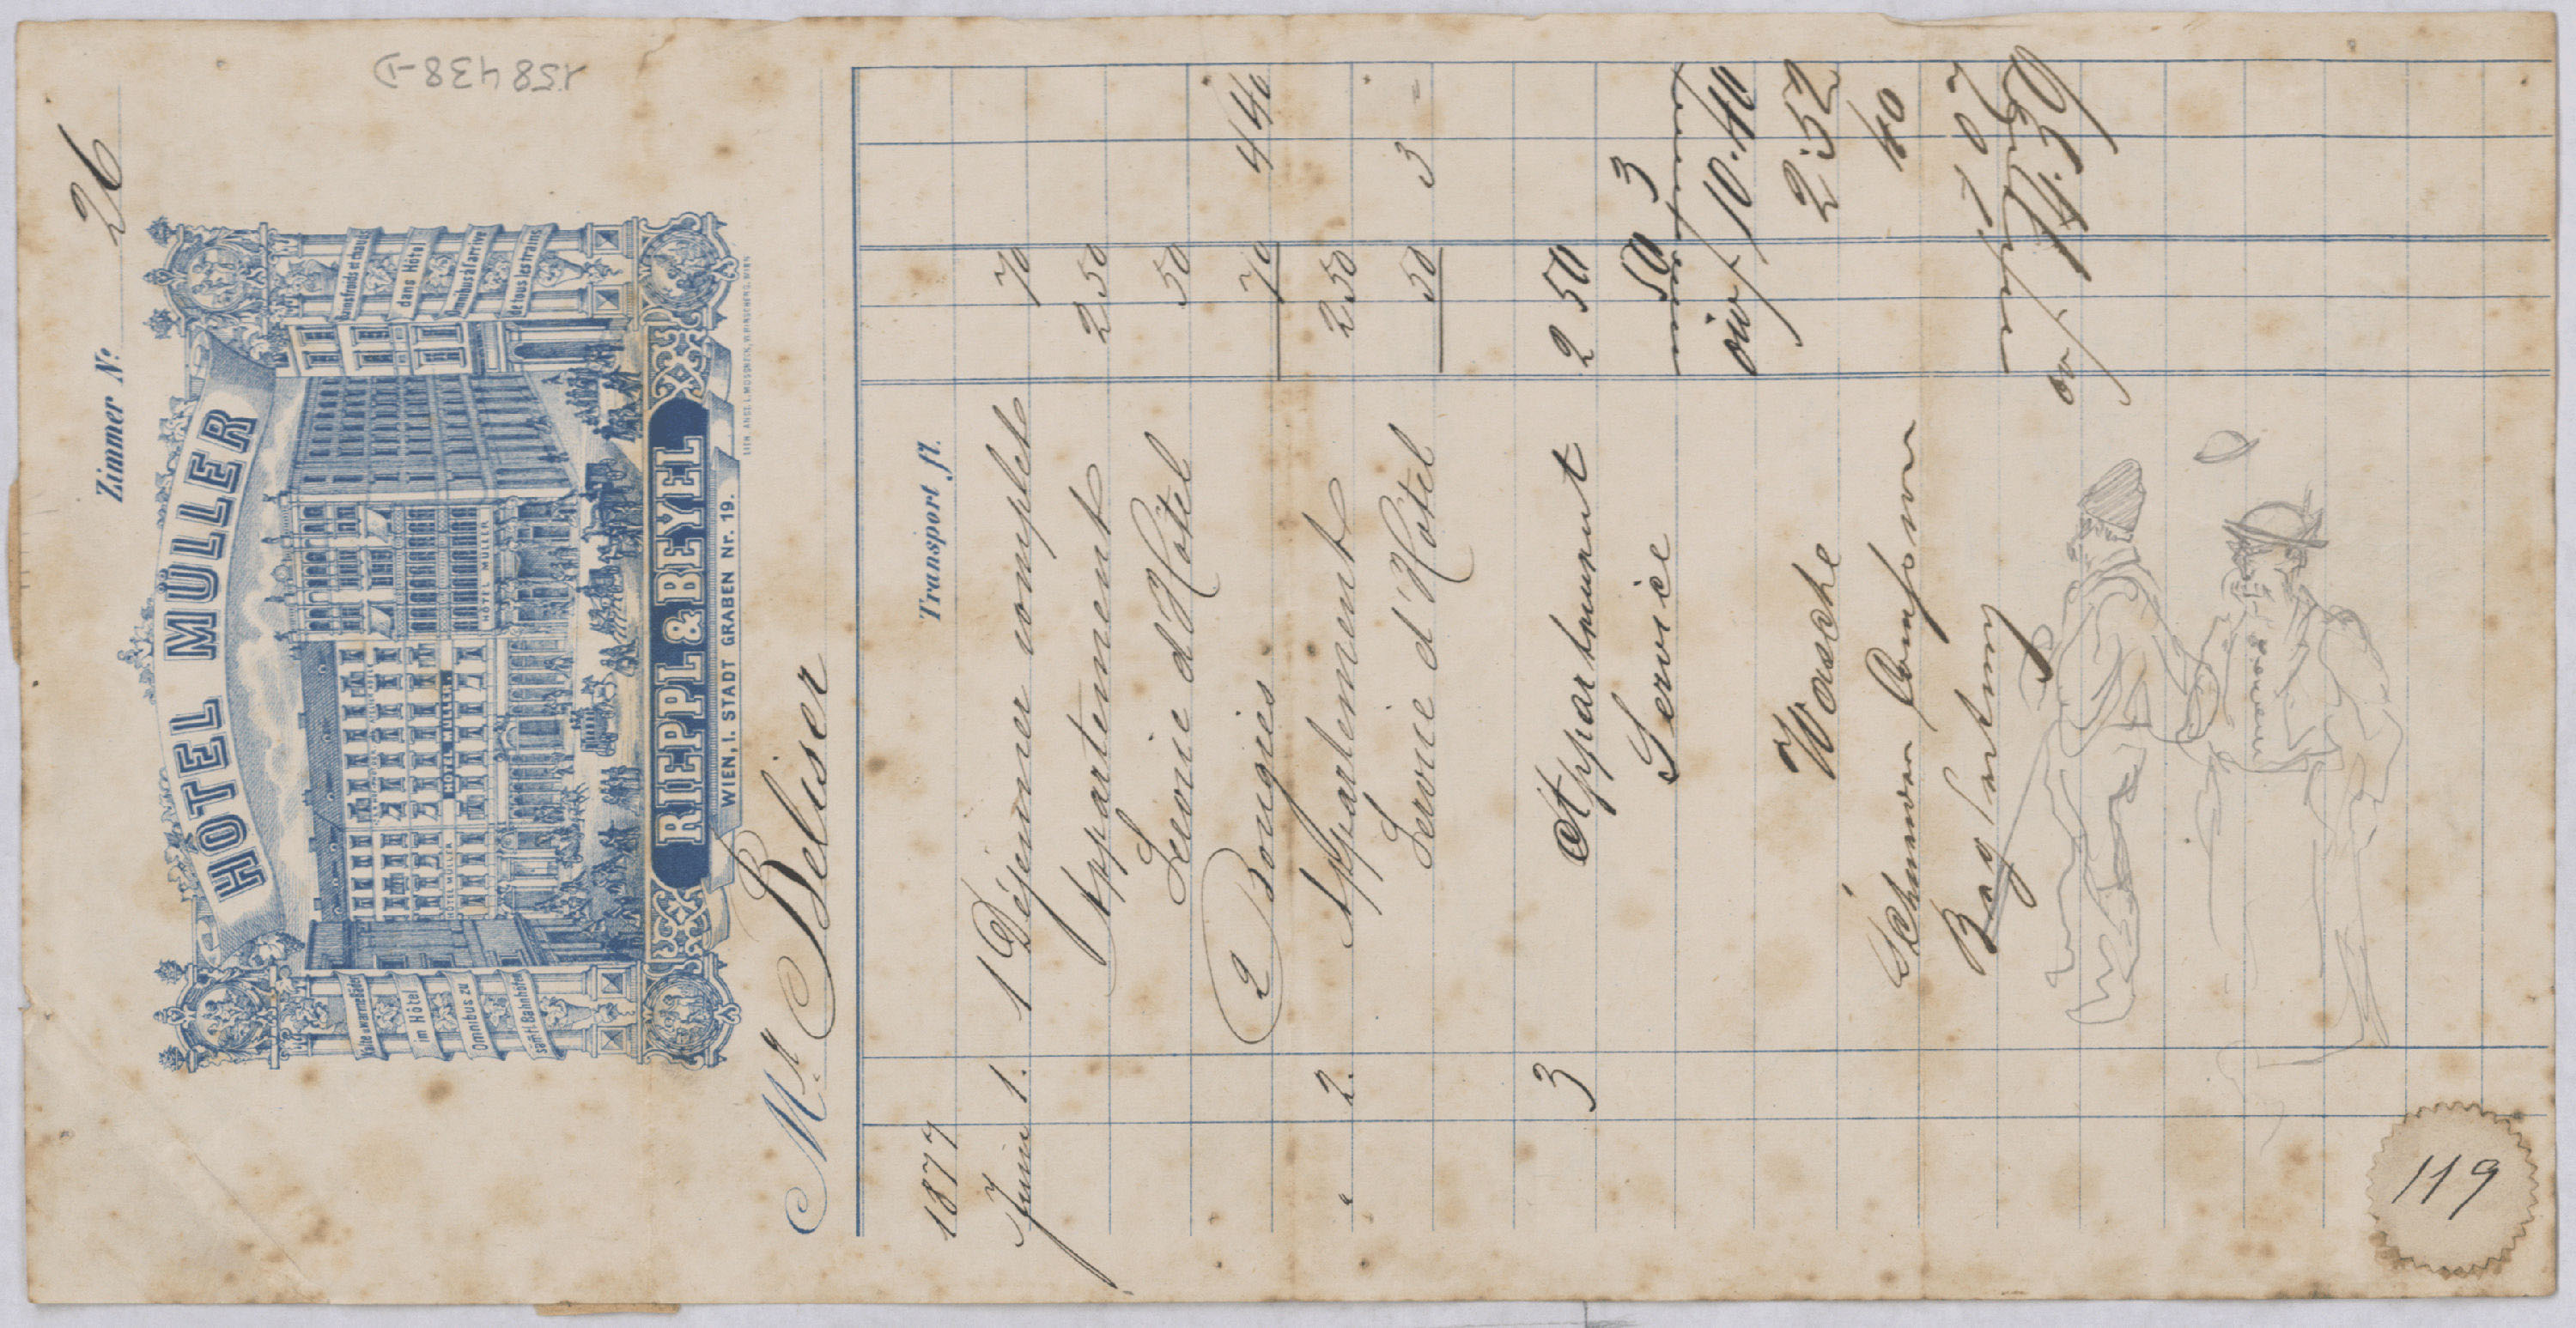 158438-D
Zimmer No. 26
HÔTEL MÜLLER
Kalte u. warme Bäder
im Hôtel
Omnibus zu
sämtl. Bahnhöfen
Bains froids et chauds
dans Hôtel
Omnibus à l'arrivé
de tous les trains
HÔTEL MÜLLER
HÔTEL MÜLLER
HÔTEL MÜLLER
RIEPPL & BEYEL
WIEN, I. STADT GRABEN Nr. 19.
Mr. Beliser
Transport fl.
1877
Juin 1. 1 Déjeuner complet 70
Appartement 2 50
Service d'Hôtel 50
2 Bougies 70 4 40
" 2. Appartement 2 50
Service d'Hôtel 50 3 -
3 Appartement 2 50
Service 50 3
10.40
Wasche 2.52
40
14.59
119